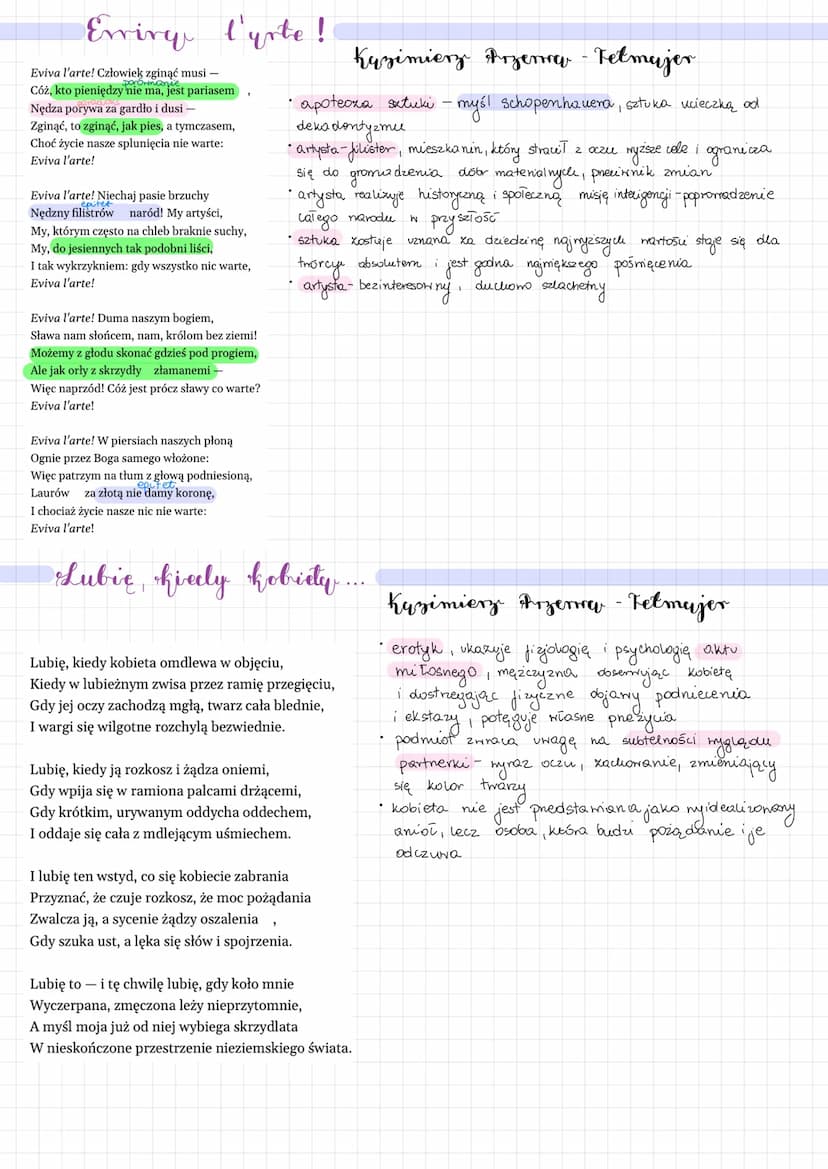 Evviva l'arte!
Kazimierz Przerwa - Tetmajer
Eviva l'arte! Człowiek zginąć musi —
porównanie
Cóż, kto pieniędzy nie ma, jest pariasem ,
Nędza porywa za gardło i dusi —
Zginąć, to zginąć, jak pies, a tymczasem,
Choć życie nasze splunięcia nie warte:
Eviva l'arte!
Eviva l'arte! Niechaj pasie brzuchy
epitet
Nędzny filistrów naród! My artyści,
My, którym często na chleb braknie suchy,
My, do jesiennych tak podobni liści,
I tak wykrzykniem: gdy wszystko nic warte,
Eviva l'arte!
Eviva l'arte! Duma naszym bogiem,
Sława nam słońcem, nam, królom bez ziemi!
Możemy z głodu skonać gdzieś pod progiem,
Ale jak orły z skrzydły złamanemi —
Więc naprzód! Cóż jest prócz sławy co warte?
Eviva l'arte!
Eviva l'arte! W piersiach naszych płoną
Ognie przez Boga samego włożone:
Więc patrzym na tłum z głową podniesioną,
epitet
Laurów za złotą nie damy koronę,
I chociaż życie nasze nic nie warte:
Eviva l'arte!
• apoteoza sztuki – myśl Schopenhauera, sztuka ucieczką od
dekadentyzmu
• artysta-filister, mieszkanin, który stracił z oczu wyższe cele i ogranicza
się do gromadzenia dóbr materialnych, przeciwnik zmian
• artysta realizuje historyczną i społeczną misję inteligencji - poprowadzenie
całego narodu w przyszłość
• sztuka zostaje uznana za dziedzinę najwyższych wartości staje się dla
twórcy absolutem i jest godna największego poświęcenia
• artysta - bezinteresowny, duchowo szlachetny
Lubię, kiedy kobieta...
Kazimierz Przerwa - Tetmajer
Lubię, kiedy kobieta omdlewa w objęciu,
Kiedy w lubieżnym zwisa przez ramię przegięciu,
Gdy jej oczy zachodzą mgłą, twarz cała blednie,
I wargi się wilgotne rozchylą bezwiednie.
Lubię, kiedy ją rozkosz i żądza oniemi,
Gdy wpija się w ramiona palcami drżącemi,
Gdy krótkim, urywanym oddycha oddechem,
I oddaje się cała z mdlejącym uśmiechem.
I lubię ten wstyd, co się kobiecie zabrania
Przyznać, że czuje rozkosz, że moc pożądania
Zwalcza ją, a sycenie żądzy oszalenia ,
Gdy szuka ust, a lęka się słów i spojrzenia.
Lubię to — i tę chwilę lubię, gdy koło mnie
Wyczerpana, zmęczona leży nieprzytomnie,
A myśl moja już od niej wybiega skrzydlata
W nieskończone przestrzenie nieziemskiego świata.
• erotyk, ukazuje fizjologię i psychologię aktu
miłosnego, mężczyzna obserwując kobietę
i dostrzegając fizyczne objawy podniecenia
i ekstazy, potęguje własne przeżycia
• podmiot zwraca uwagę na subtelności wyglądu
partnerki - wyraz oczu, zachowanie, zmieniający
się kolor twarzy
• kobieta nie jest przedstawiana jako wyidealizowany
anioł, lecz osoba, która budzi pożądanie i je
odczuwa